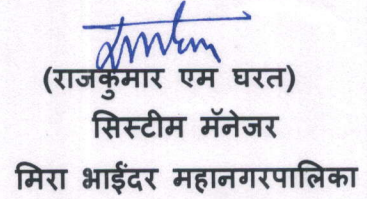 (राजकुमार एम घरत)
सिस्टीम मॅनेजर
मिरा भाईंदर महानगरपालिका